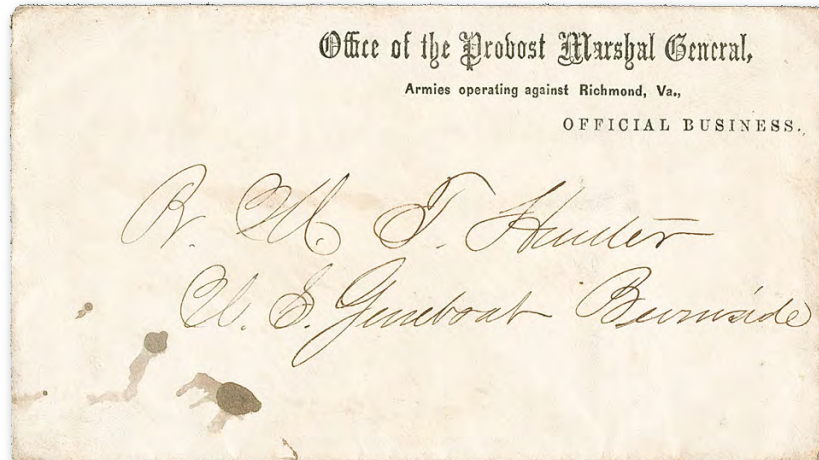 Office of the Provost Marshal General,
Armies operating against Richmond, Va.,
OFFICIAL BUSINESS.
R. M. T. Hunter
U. S. Guneboat Burnside